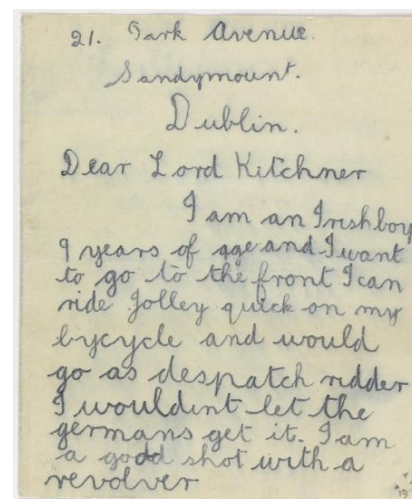 21. Park Avenue.
Sandymount.
Dublin.
Dear Lord Kitchner
I am an Irish boy
9 years of age and I want
to go to the front I can
ride jolley quick on my
bycycle and would
go as despatch ridder
I wouldint let the
germans get it. I am
a good shot with a
revolver